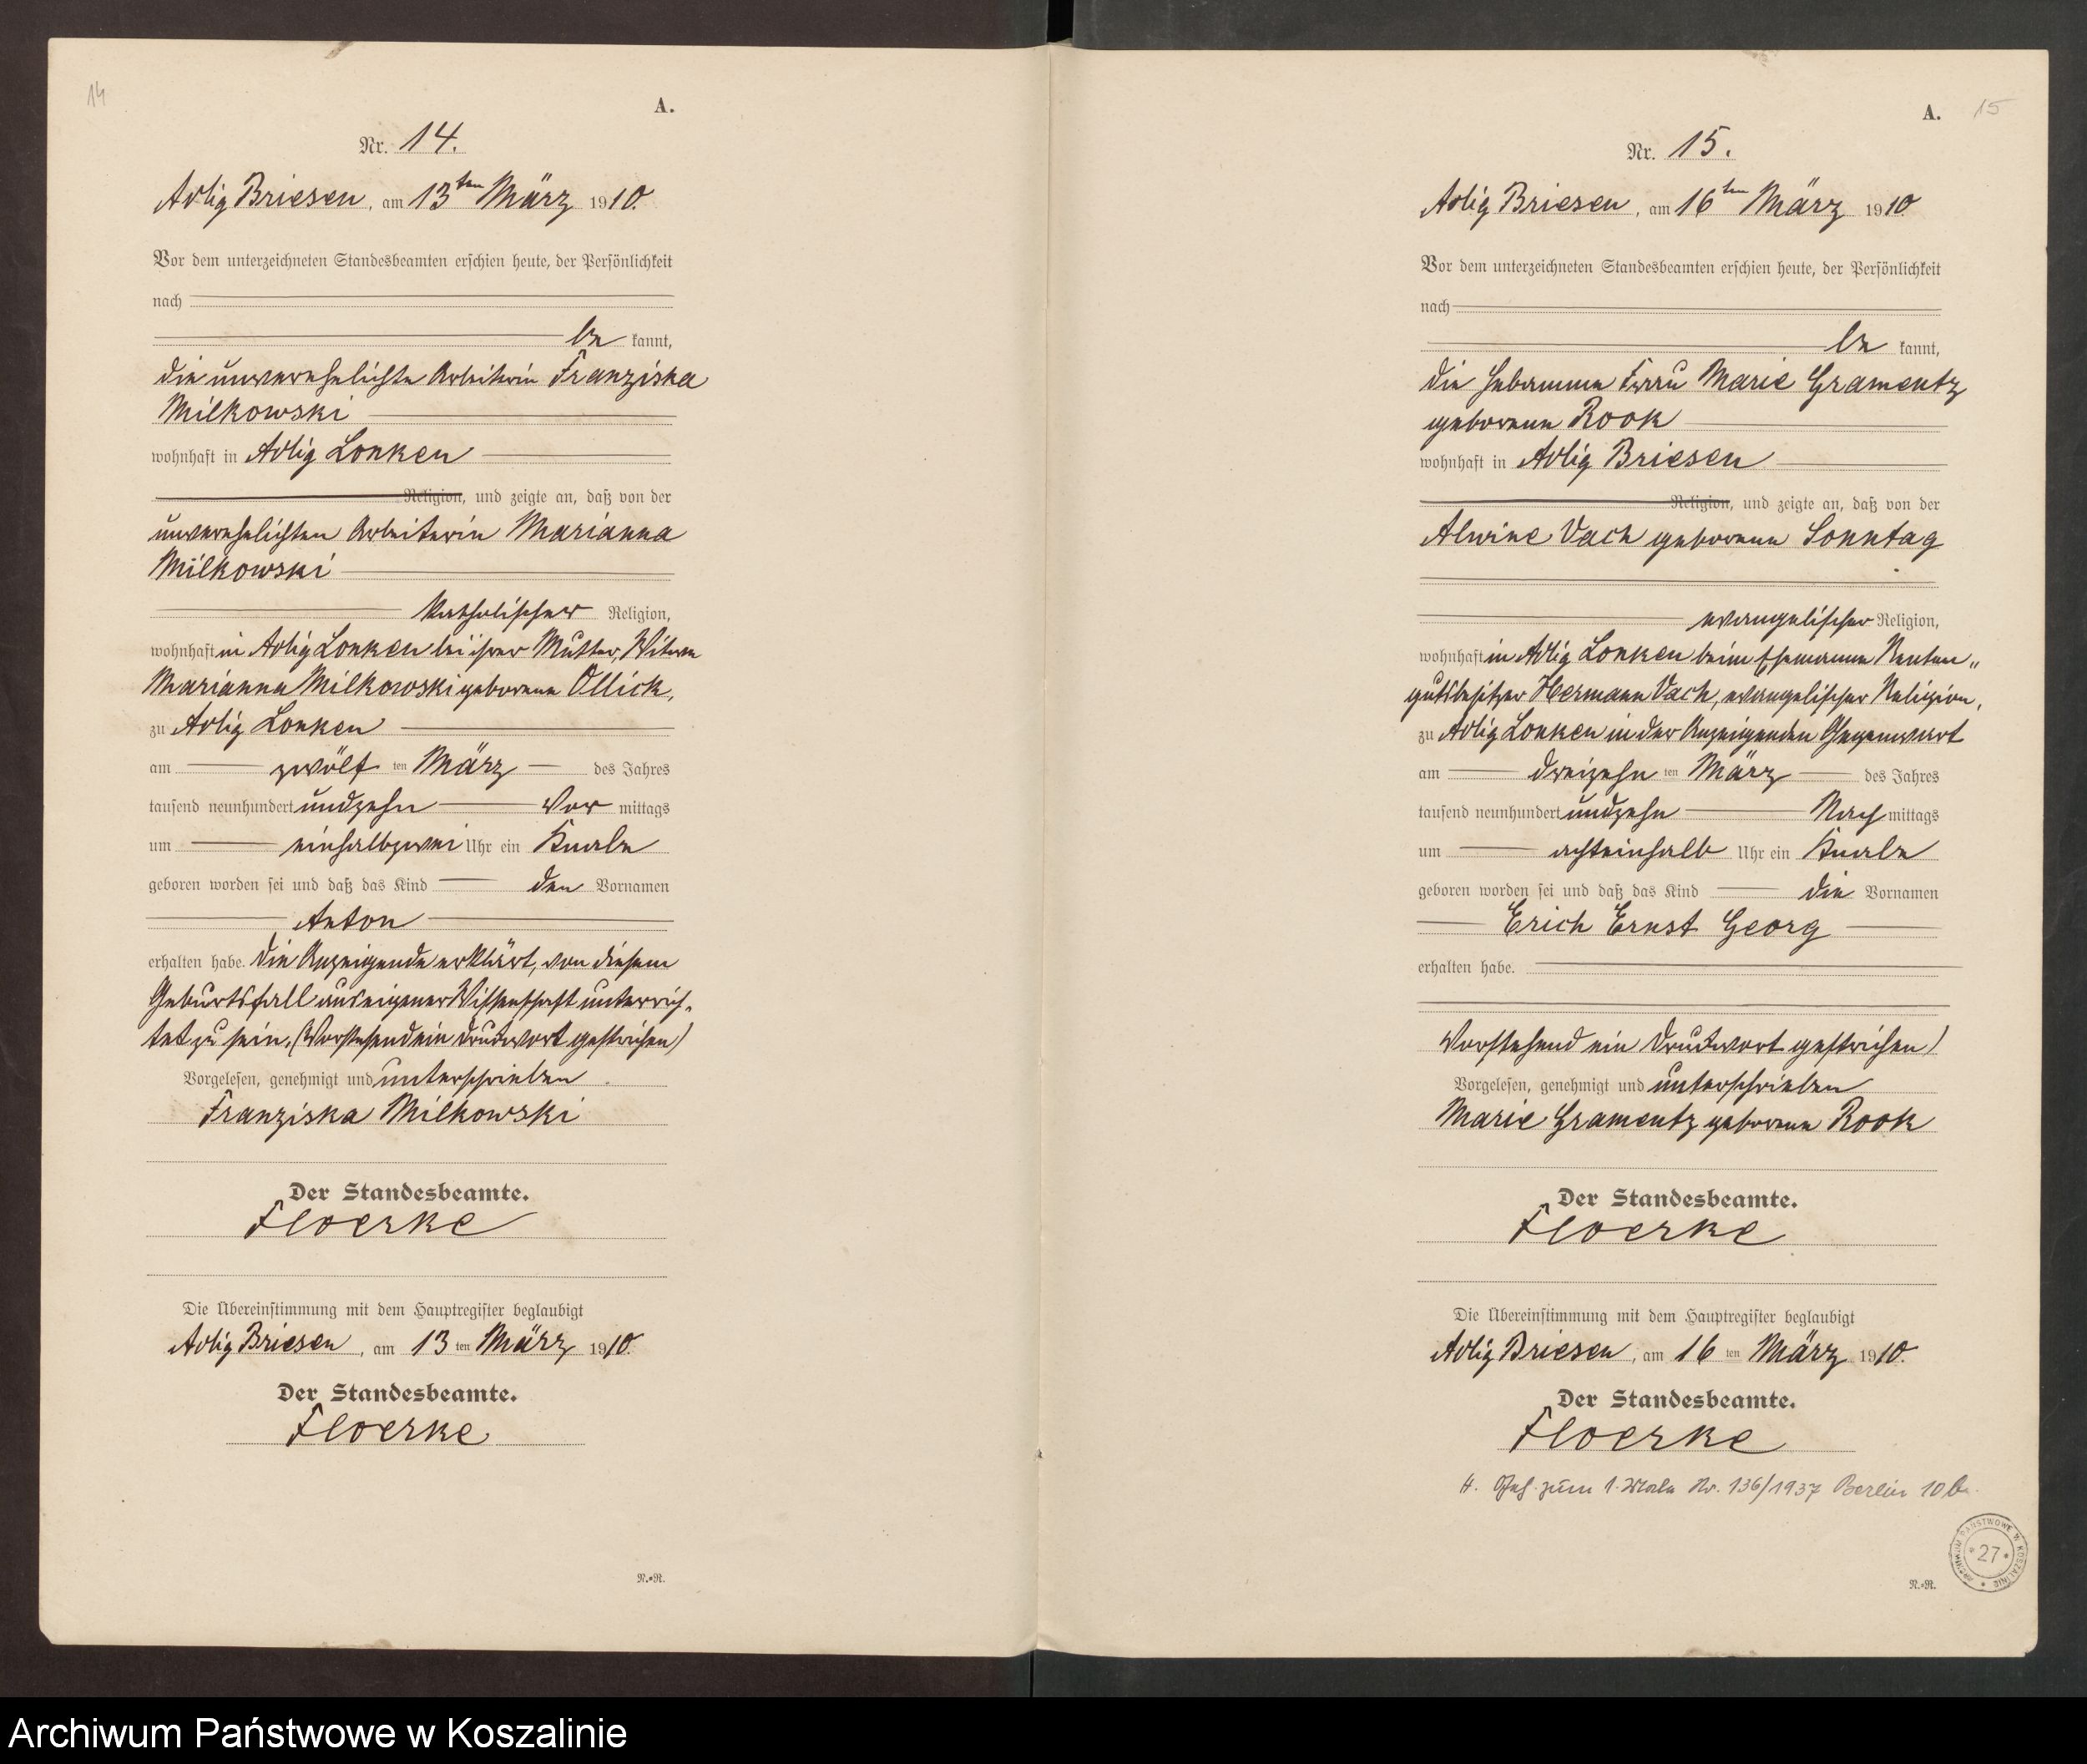 14
A.
Nr. 14.
Adlig Briesen, am 13ten März 1910.
Vor dem unterzeichneten Standesbeamten erschien heute, der Persönlichkeit
nach
be kannt,
die unverehelichte Arbeiterin Franziska
Milkowski
wohnhaft in Adlig Lonken
Religion, und zeigte an, daß von der
unverehelichten Arbeiterin Marianna
Milkowski
katholischer Religion,
wohnhaft in Adlig Lonken bei ihrer Mutter, Witwe
Marianna Milkowski geborene Ollick,
zu Adlig Lonken
am zwölf ten März des Jahres
tausend neunhundert undzehn Vor mittags
um einhalbzwei Uhr ein Knabe
geboren worden sei und daß das Kind den Vornamen
Anton
erhalten habe. Die Anzeigende erklärt, von diesem
Geburtsfall aus eigener Wissenschaft unterrich-
tet zu sein. (Vorstehend ein Druckwort gestrichen)
Vorgelesen, genehmigt und unterschrieben
Franziska Milkowski
Der Standesbeamte.
Floerke
Die Übereinstimmung mit dem Hauptregister beglaubigt
Adlig Briesen, am 13 ten März 1910.
Der Standesbeamte.
Floerke
N.=R.
A.
15
Nr. 15.
Adlig Briesen, am 16ten März 1910
Vor dem unterzeichneten Standesbeamten erschien heute, der Persönlichkeit
nach
be kannt,
die Hebamme Frau Marie Gramentz
geborene Rook
wohnhaft in Adlig Briesen
Religion, und zeigte an, daß von der
Alwine Vach geborene Sonntag
evangelischer Religion,
wohnhaft in Adlig Lonken beim Ehemanne Renten„
gutsbesitzer Hermann Vach, evangelischer Religion,
zu Adlig Lonken in der Anzeigenden Gegenwart
am dreizehn ten März des Jahres
tausend neunhundert undzehn Nach mittags
um achteinhalb Uhr ein Knabe
geboren worden sei und daß das Kind die Vornamen
Erich Ernst Georg
erhalten habe.
Vorstehend ein Druckwort gestrichen)
Vorgelesen, genehmigt und unterschrieben
Marie Gramentz geborene Rook
Der Standesbeamte.
Floerke
Die Übereinstimmung mit dem Hauptregister beglaubigt
Adlig Briesen, am 16 ten März 1910.
Der Standesbeamte.
Floerke
zum 1. Male Nr. 136/1937 Berlin 10b
ARCHIWUM PAŃSTWOWE W KOSZALINIE
* 27 *
N.=R.
Archiwum Państwowe w Koszalinie